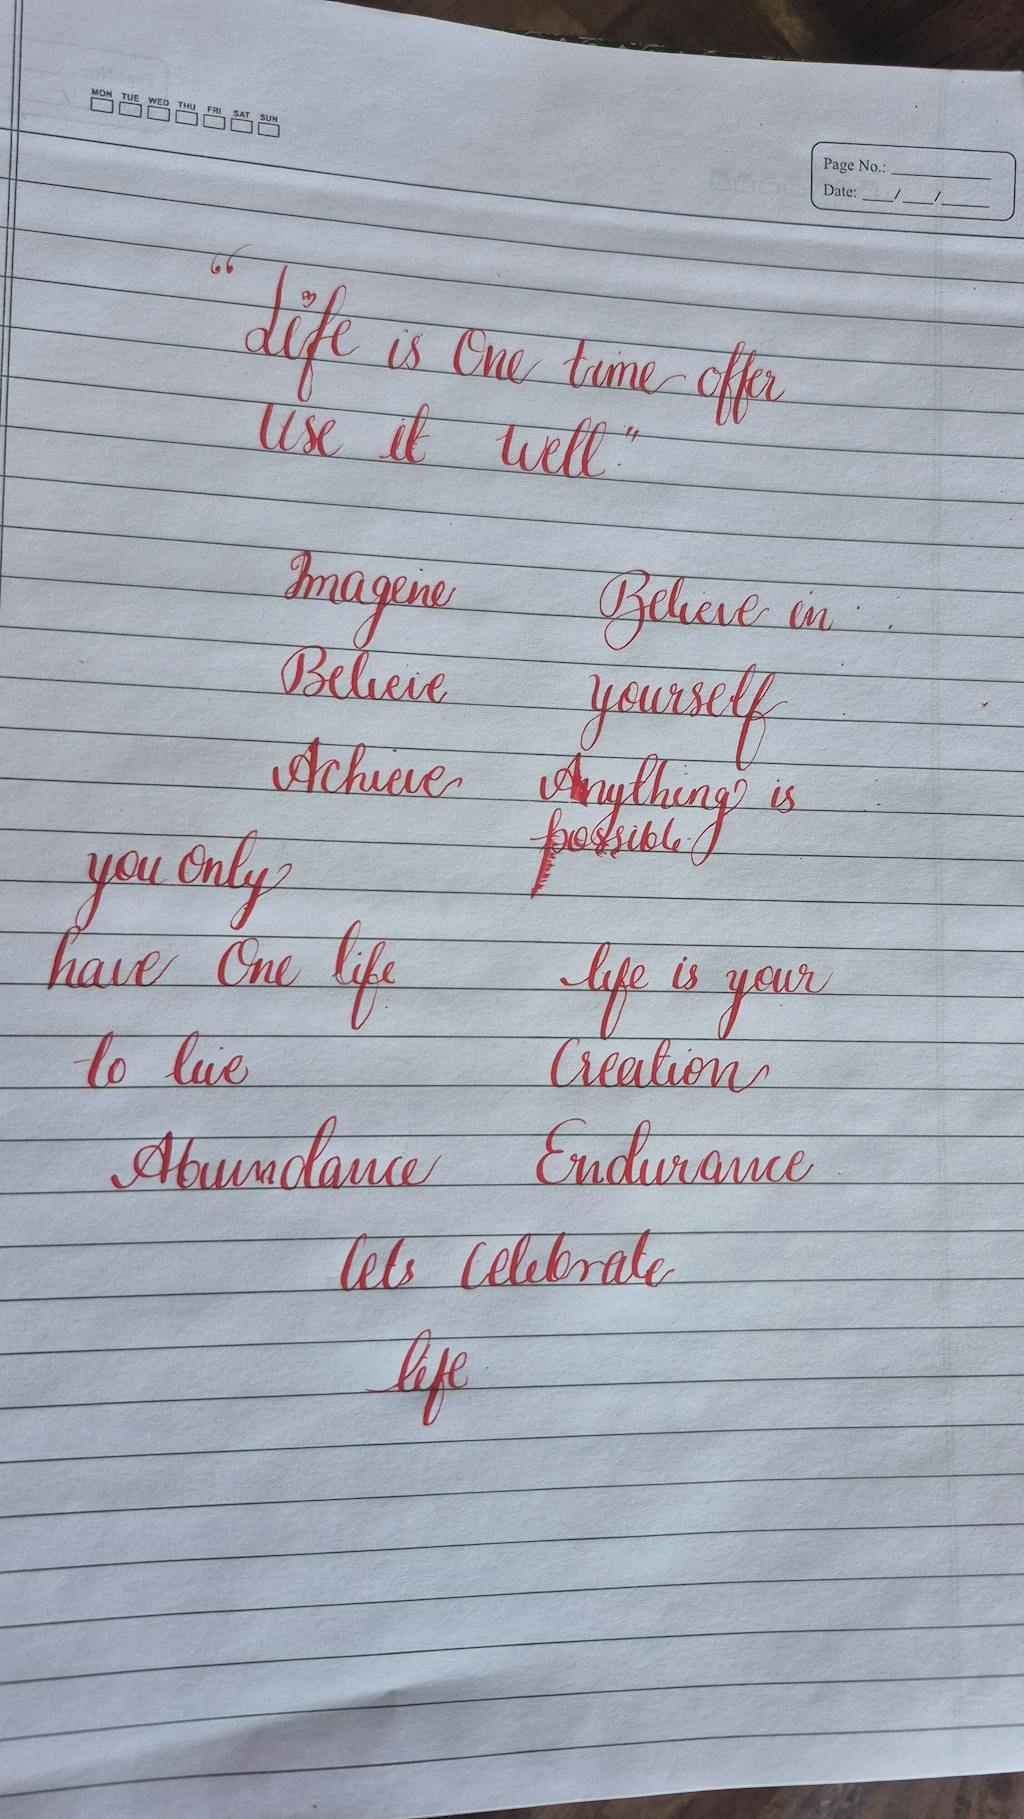 MON TUE WED THU FRI SAT SUN
Page No.:
Date: __/__/____
“Life is One time offer
Use it well”
Imagine
Believe
Achieve
Believe in
yourself
Anything is
possible.
you only
have One life
to live
life is your
Creation
Abundance
Endurance
lets celebrate
life